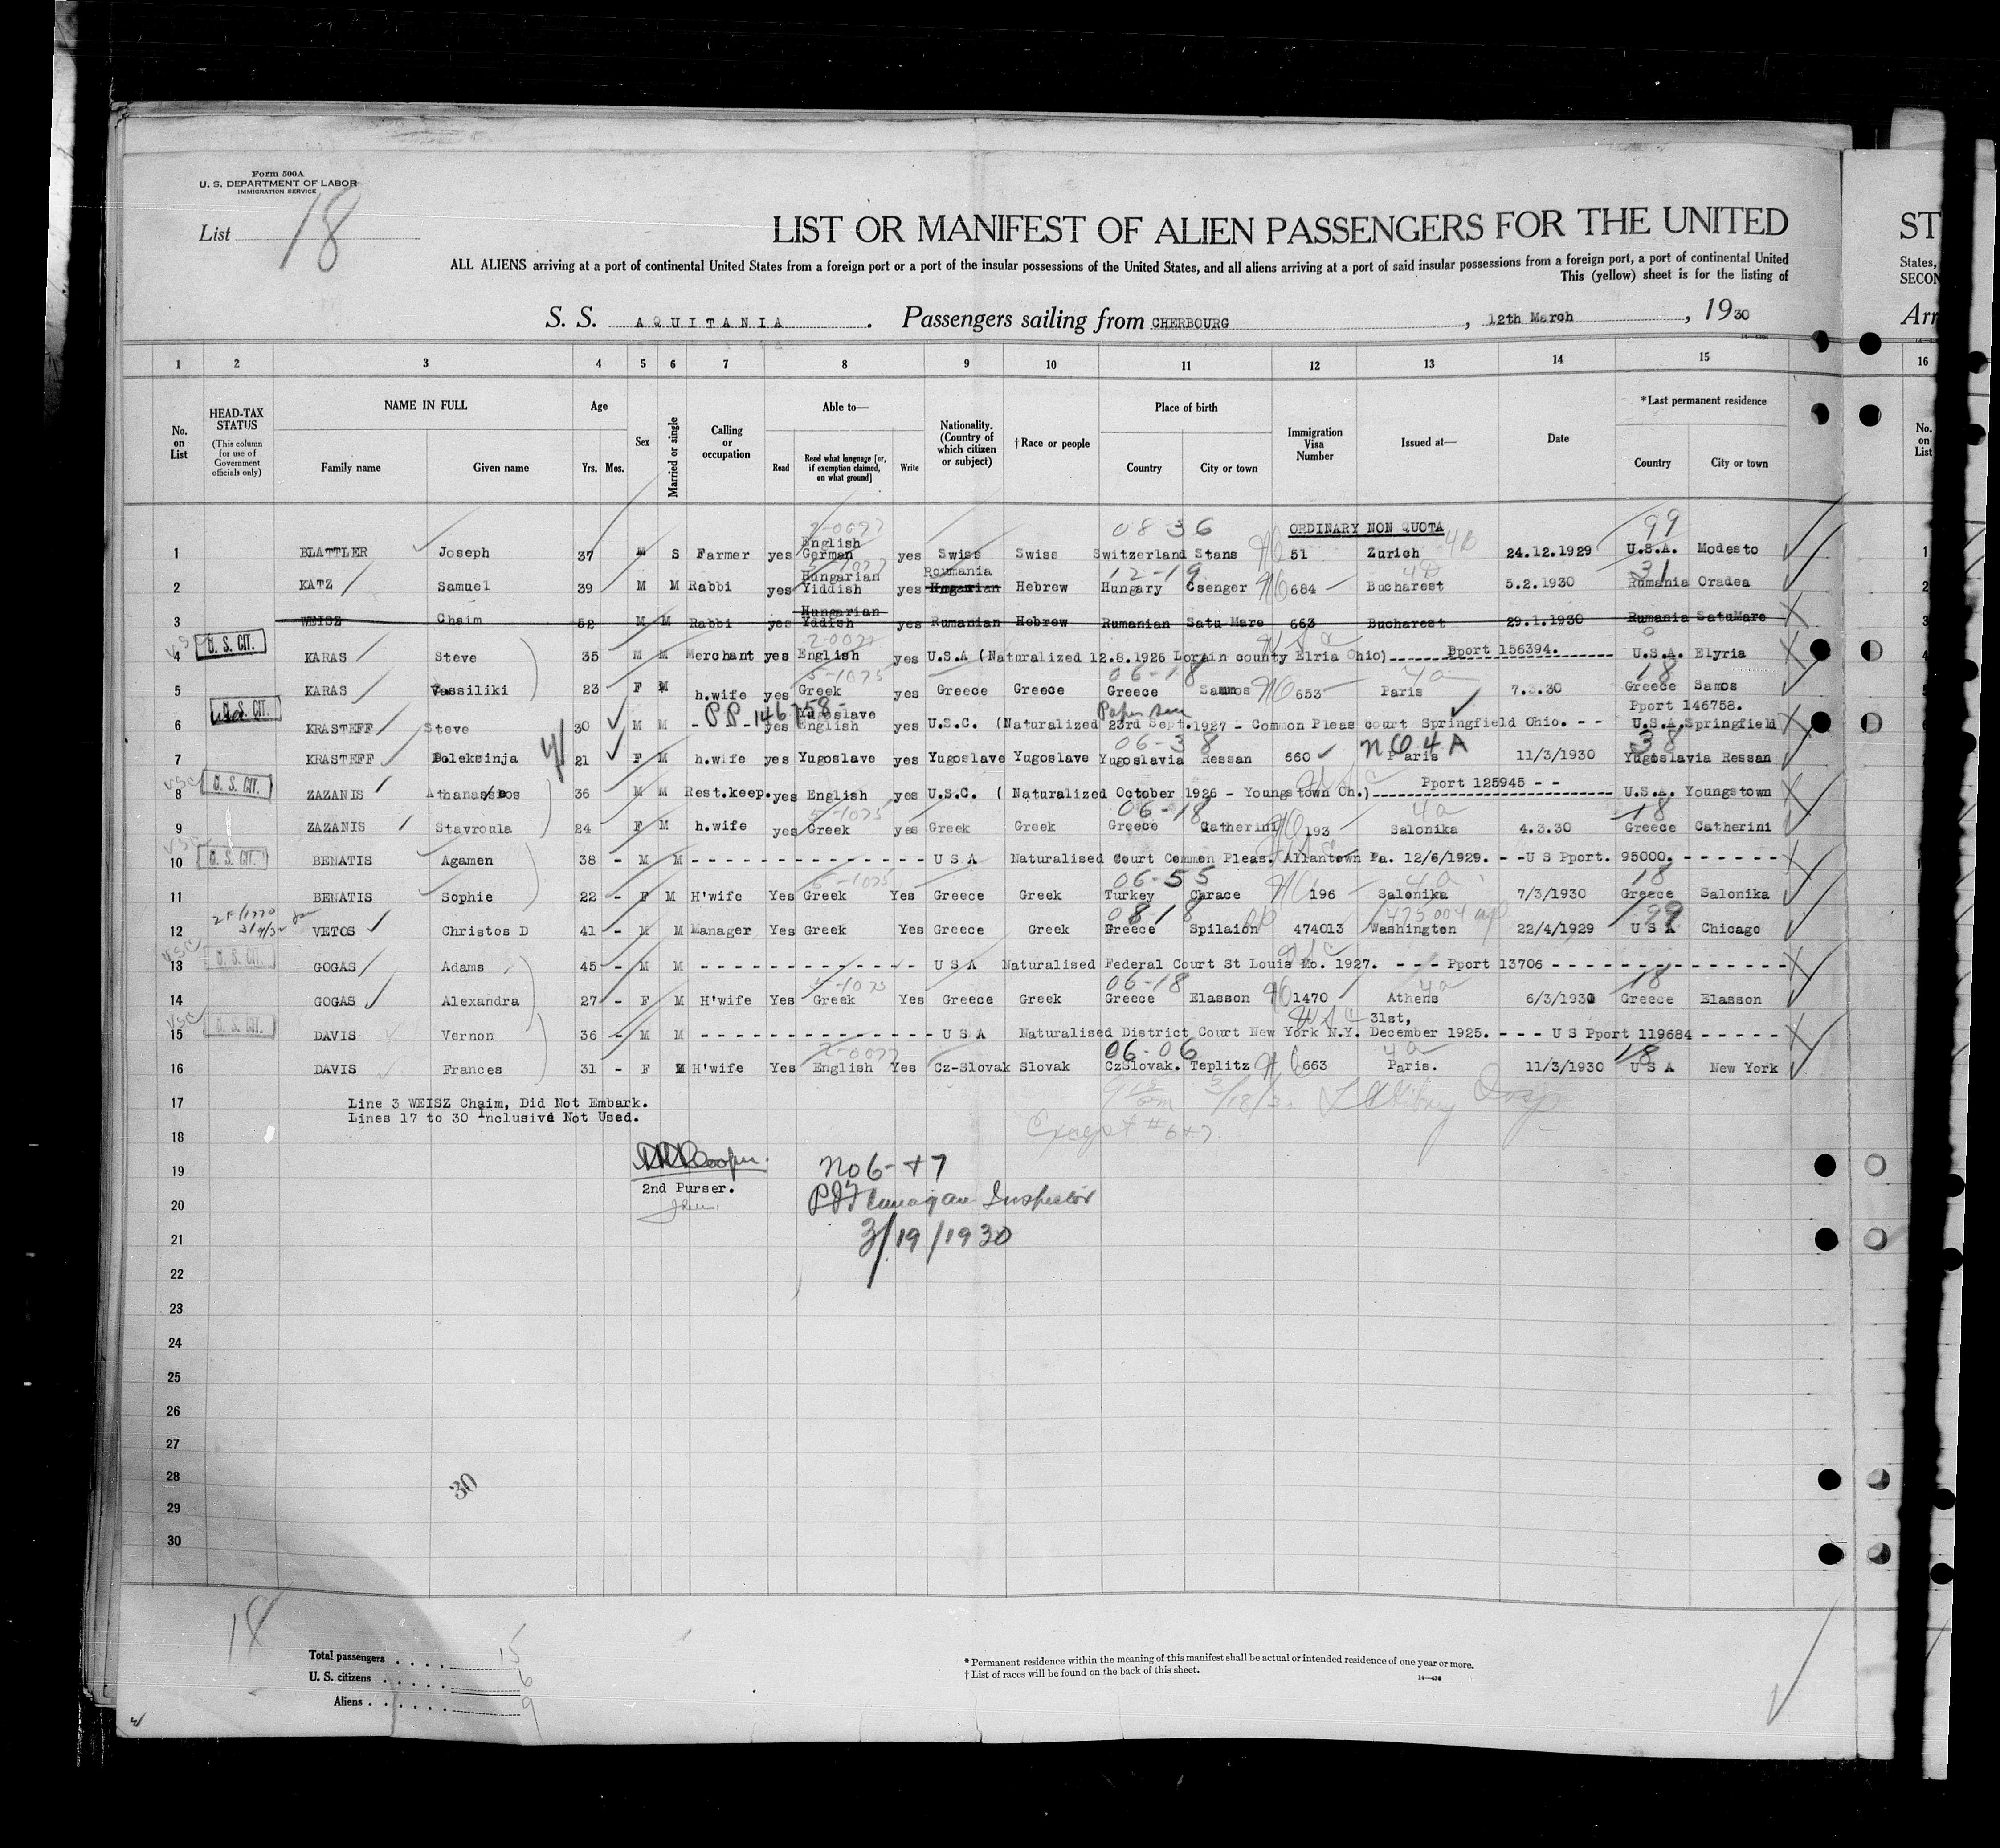 Form 500A
U. S. DEPARTMENT OF LABOR
IMMIGRATION SERVICE
List 18
LIST OR MANIFEST OF ALIEN PASSENGERS FOR THE UNITED
ST
ALL ALIENS arriving at a port of continental United States from a foreign port or a port of the insular possessions of the United States, and all aliens arriving at a port of said insular possessions from a foreign port, a port of continental United
States,
This (yellow) sheet is for the listing of
SECON
S. S. AQUITANIA. Passengers sailing from CHERBOURG, 12th March, 1930
Arr
1 2 3 4 5 6 7 8 9 10 11 12 13 14 15 16
No. on List
HEAD-TAX STATUS
(This column for use of Government officials only)
NAME IN FULL
Family name Given name
Age
Yrs. Mos.
Sex
Married or single
Calling or occupation
Able to—
Read
Read what language [or, if exemption claimed, on what ground]
Write
Nationality. (Country of which citizen or subject)
†Race or people
Place of birth
Country City or town
Immigration Visa Number
Issued at—
Date
*Last permanent residence
Country City or town
No. on List
2-0077 08 36 ORDINARY NON QUOTA 99
1 BLATTLER Joseph 37 M S Farmer yes English German yes Swiss Swiss Switzerland Stans 51 Zurich 24.12.1929 U.S.A. Modesto 1
12-19 31
2 KATZ Samuel 39 M M Rabbi yes Hungarian Yiddish yes Roumania Hungarian Hebrew Hungary Csenger 684 Bucharest 5.2.1930 Rumania Oradea 2
3 WEISZ Chaim 52 M M Rabbi yes Hungarian Yddish yes Rumanian Hebrew Rumanian Satu Mare 663 Bucharest 29.1.1930 Rumania SatuMare 3
U. S. CIT.
4 KARAS Steve 35 M M Merchant yes English yes U.S.A (Naturalized 12.8.1926 Lorain county Elria Ohio) Pport 156394. U.S.A. Elyria 4
5-1075 06-18 4a 18
5 KARAS Vassiliki 23 F M h.wife yes Greek yes Greece Greece Greece Samos 653 Paris 7.3.30 Greece Samos
U. S. CIT. PP-146758- Pport 146758.
6 KRASTEFF Steve 30 M M - yes Yugoslave English yes U.S.C. (Naturalized 23rd Sept.1927 - Common Pleas court Springfield Ohio. - - U.S.A. Springfield
06-38 NQ 4A 38
7 KRASTEFF Doleksinja 21 F M h.wife yes Yugoslave yes Yugoslave Yugoslave Yugoslavia Ressan 660 Paris 11/3/1930 Yugoslavia Ressan 7
U. S. CIT.
8 ZAZANIS Athanasios 36 M M Rest.keep. yes English yes U.S.C. ( Naturalized October 1926 - Youngstown Oh.) Pport 125945 - - U.S.A. Youngstown
5-1075 06-18 4a 18
9 ZAZANIS Stavroula 24 F M h.wife yes Greek yes Greek Greek Greece Catherini 193 Salonika 4.3.30 Greece Catherini
U. S. CIT.
10 BENATIS Agamen 38 - M M - - - USA Naturalised Court Common Pleas. Allantown Pa. 12/6/1929. - -US Pport. 95000. - - - - - -
5-1075 06-55 4a 18
11 BENATIS Sophie 22 - F M H'wife Yes Greek Yes Greece Greek Turkey Chrace 196 Salonika 7/3/1930 Greece Salonika
99
12 VETOS Christos D 41 - M M Manager Yes Greek Yes Greece Greek Greece Spilaion 474013 Washington 22/4/1929 USA Chicago
U. S. CIT.
13 GOGAS Adams 45 - M M - - - USA Naturalised Federal Court St Louis Mo. 1927. - - - Pport 13706 - - -
06-18 4a 18
14 GOGAS Alexandra 27 - F M H'wife Yes Greek Yes Greece Greek Greece Elasson 1470 Athens 6/3/1930 Greece Elasson
U. S. CIT.
15 DAVIS Vernon 36 - M M - - - USA Naturalised District Court New York N.Y. 31st, December 1925. - - - US Pport 119684 - - - - -
2-0077 06-06 4a 18
16 DAVIS Frances 31 - F M H'wife Yes English Yes Cz-Slovak Slovak CzSlovak. Teplitz 663 Paris. 11/3/1930 USA New York
17 Line 3 WEISZ Chaim, Did Not Embark.
Lines 17 to 30 Inclusive Not Used.
3/18/30
Except #6+7.
18
19 No 6-+7
2nd Purser.
20 Inspector
21 3/19/1930
22
23
24
25
26
27
28
30
29
30
18
Total passengers 15
U. S. citizens 6
Aliens 9
* Permanent residence within the meaning of this manifest shall be actual or intended residence of one year or more.
† List of races will be found on the back of this sheet.